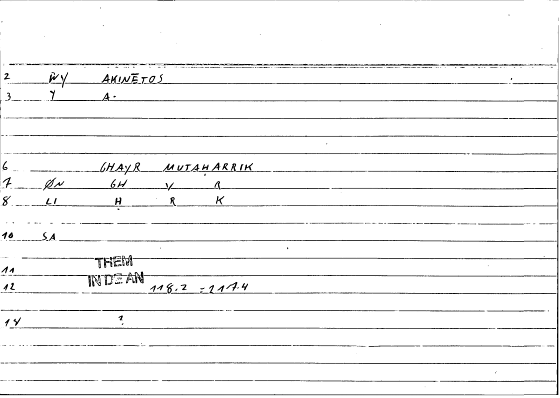 2 NY AKINĒTOS
3 Y A-
6 GHAYR MUTAḤARRIK
7 ØN GH Y R
8 LI Ḥ R K
10 SA
11 THEM
IN DE AN
12 118.2 = 217.4
14 ?